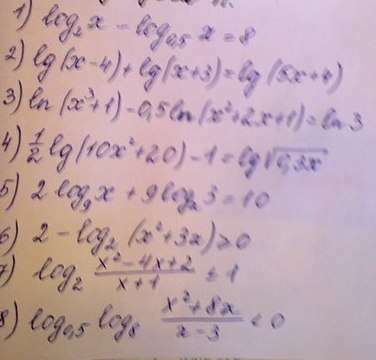 1) log₂x - log₀,₅ x = 8
2) lg(x-4)+lg(x+3)=lg(5x+4)
3) ln(x³+1)-0,5ln(x²+2x+1)=ln3
4) ½ lg(10x²+20)-1=lg√0,3x
5) 2log₉x+9logₓ3=10
6) 2-log₂(x²+3x)≥0
7) log₂ (x²-4x+2)/(x+1) ≤ 1
8) log₀,₅ log₈ (x²+8x)/(x-3) < 0